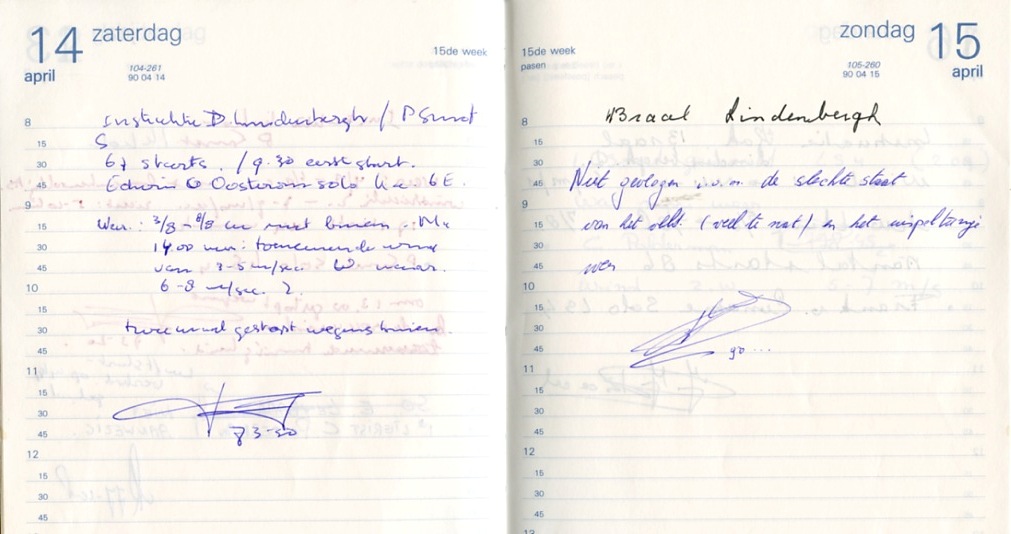 14 zaterdag
april
104-261
90 04 14
15de week
8
Instructie D Lindenbergh / P Smut
S
15
67 starts. / 9.30 eerste start.
30
Edwin Oosterom solo Ka 6 E.
45
9
Weer: 3/8 - 8/8 cu met buien.
15
1400 uur: toenemende wind
30
van 3-5 m/sec. W
45
6-8 m/sec.
10
15
tweemaal gestopt wegens buien
30
45
11
15
30
45
12
15
30
45
zondag 15
april
15de week
pasen
105-260
90 04 15
8
Braael Lindenbergh
15
30
45
Niet gevlogen i.v.m. de slechte staat
9
15
van het veld. (veel te nat) en het miezerige
30
45
weer
10
15
30
45
go ...
11
15
30
45
12
15
30
45
13